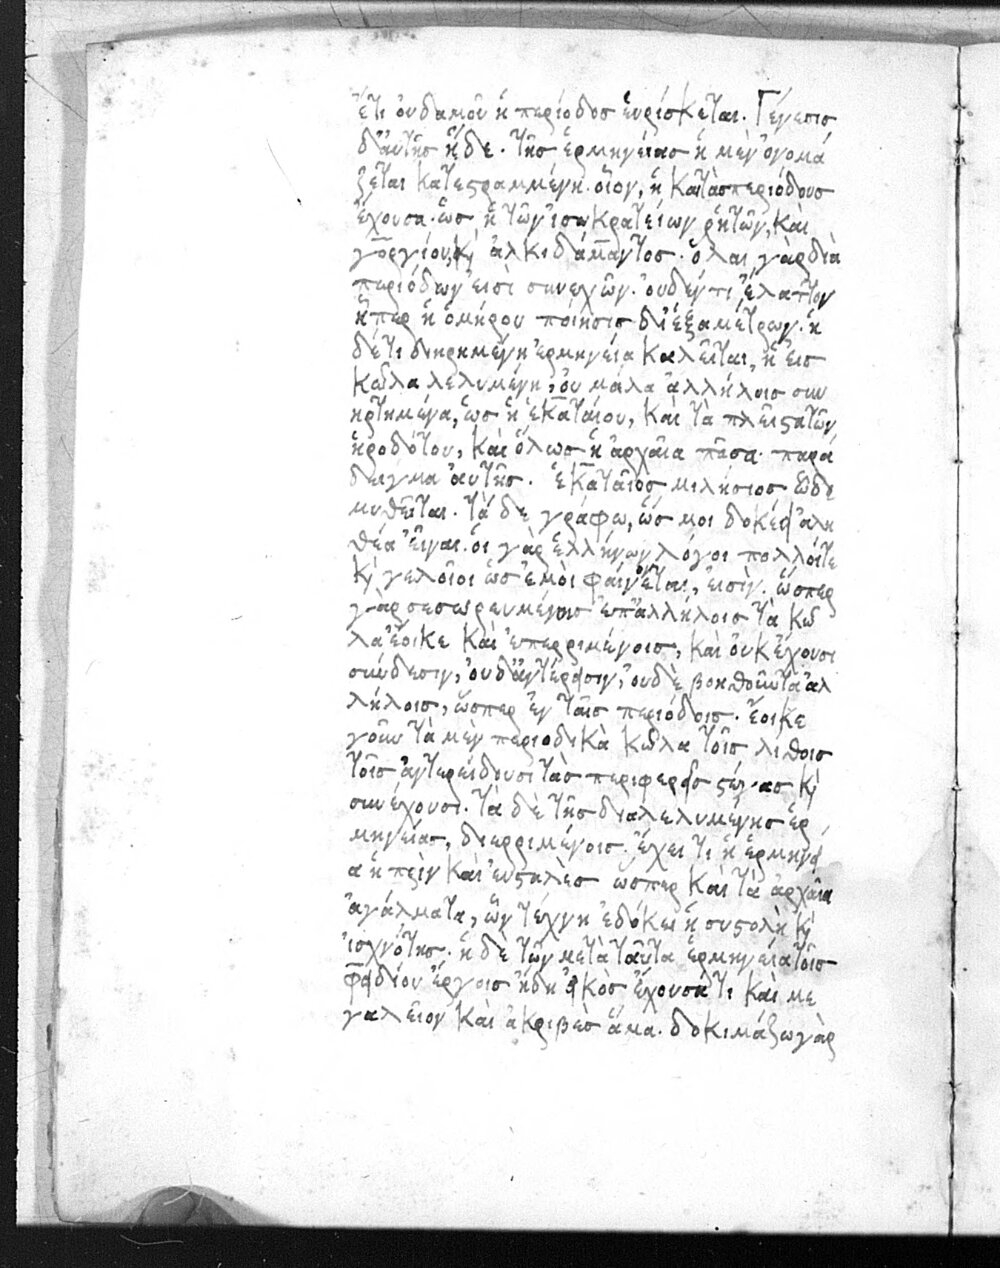 ἔτι οὐδαμοῦ ἡ περίοδος εὑρίσκεται. Γένεσις
δ' αὐτῆς ἥδε. τῆς ἑρμηνείας ἡ μὲν ὀνομά
ζεται κατεστραμμένη. οἷον, ἡ κατὰ περιόδους
ἔχουσα. ὡς ἡ τῶν ἰσοκρατείων ῥητῶν, καὶ
γοργίου, κ̀ ἀλκιδάμαντος. ὅλαι γὰρ διὰ
περιόδων εἰσὶ συνεχῶν. οὐδέν τι ἔλαττον
ἤπερ ἡ ὁμήρου ποίησις δι' ἑξαμέτρων. ἡ
δέ τι διῃρημένη ἑρμηνεία καλεῖται, ἡ εἰς
κῶλα λελυμένη, οὐ μάλα ἀλλήλοις συν
ηρτημένα, ὡς ἡ ἑκαταίου, καὶ τὰ πλεῖστα τῶν
ἡροδότου, καὶ ὅλως ἡ ἀρχαία πᾶσα. παρά
δειγμα αὐτῆς. ἑκαταῖος μιλήσιος ὧδε
μυθεῖται. τά δε γράφω, ὥς μοι δοκέει ἀλη
θέα εἶναι. οἱ γὰρ ἑλλήνων λόγοι πολλοί τε
κ̀ γελοῖοι ὡς ἐμοὶ φαίνονται, εἰσίν. ὥσπερ
γὰρ σεσωρευμένοις ἐπ' ἀλλήλοις τὰ κῶ
λα ἔοικε καὶ ἐπερριμένοις, καὶ οὐκ ἔχουσι
σύνδεσιν, οὐδ' ἀντέρεισιν, οὐδὲ βοηθοῦντα ἀλ
λήλοις, ὥσπερ ἐν ταῖς περιόδοις. ἔοικε
γοῦν τὰ μὲν περιοδικὰ κῶλα τοῖς λίθοις
τοῖς ἀντερείδουσι τὰς περιφερεῖς στέγας κ̀
συνέχουσι. τὰ δὲ τῆς διαλελυμένης ἑρ
μηνείας, διερριμένοις. ἔχει τι ἡ ἑρμηνεί
α ἡ πρὶν καὶ εὐσταλὲς ὥσπερ καὶ τὰ ἀρχαῖα
ἀγάλματα, ὧν τέχνη ἐδόκει ἡ συστολὴ κ̀
ἰσχνότης. ἡ δὲ τῶν μετὰ ταῦτα ἑρμηνεία τοῖς
φειδίου ἔργοις ἤδη εἰκὸς ἔχουσά τι καὶ με
γαλεῖον καὶ ἀκριβὲς ἅμα. δοκιμάζω γὰρ